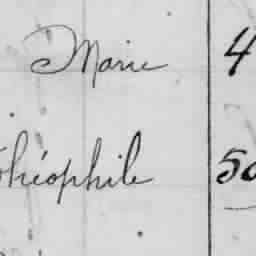 Marie 4
Théophile 50